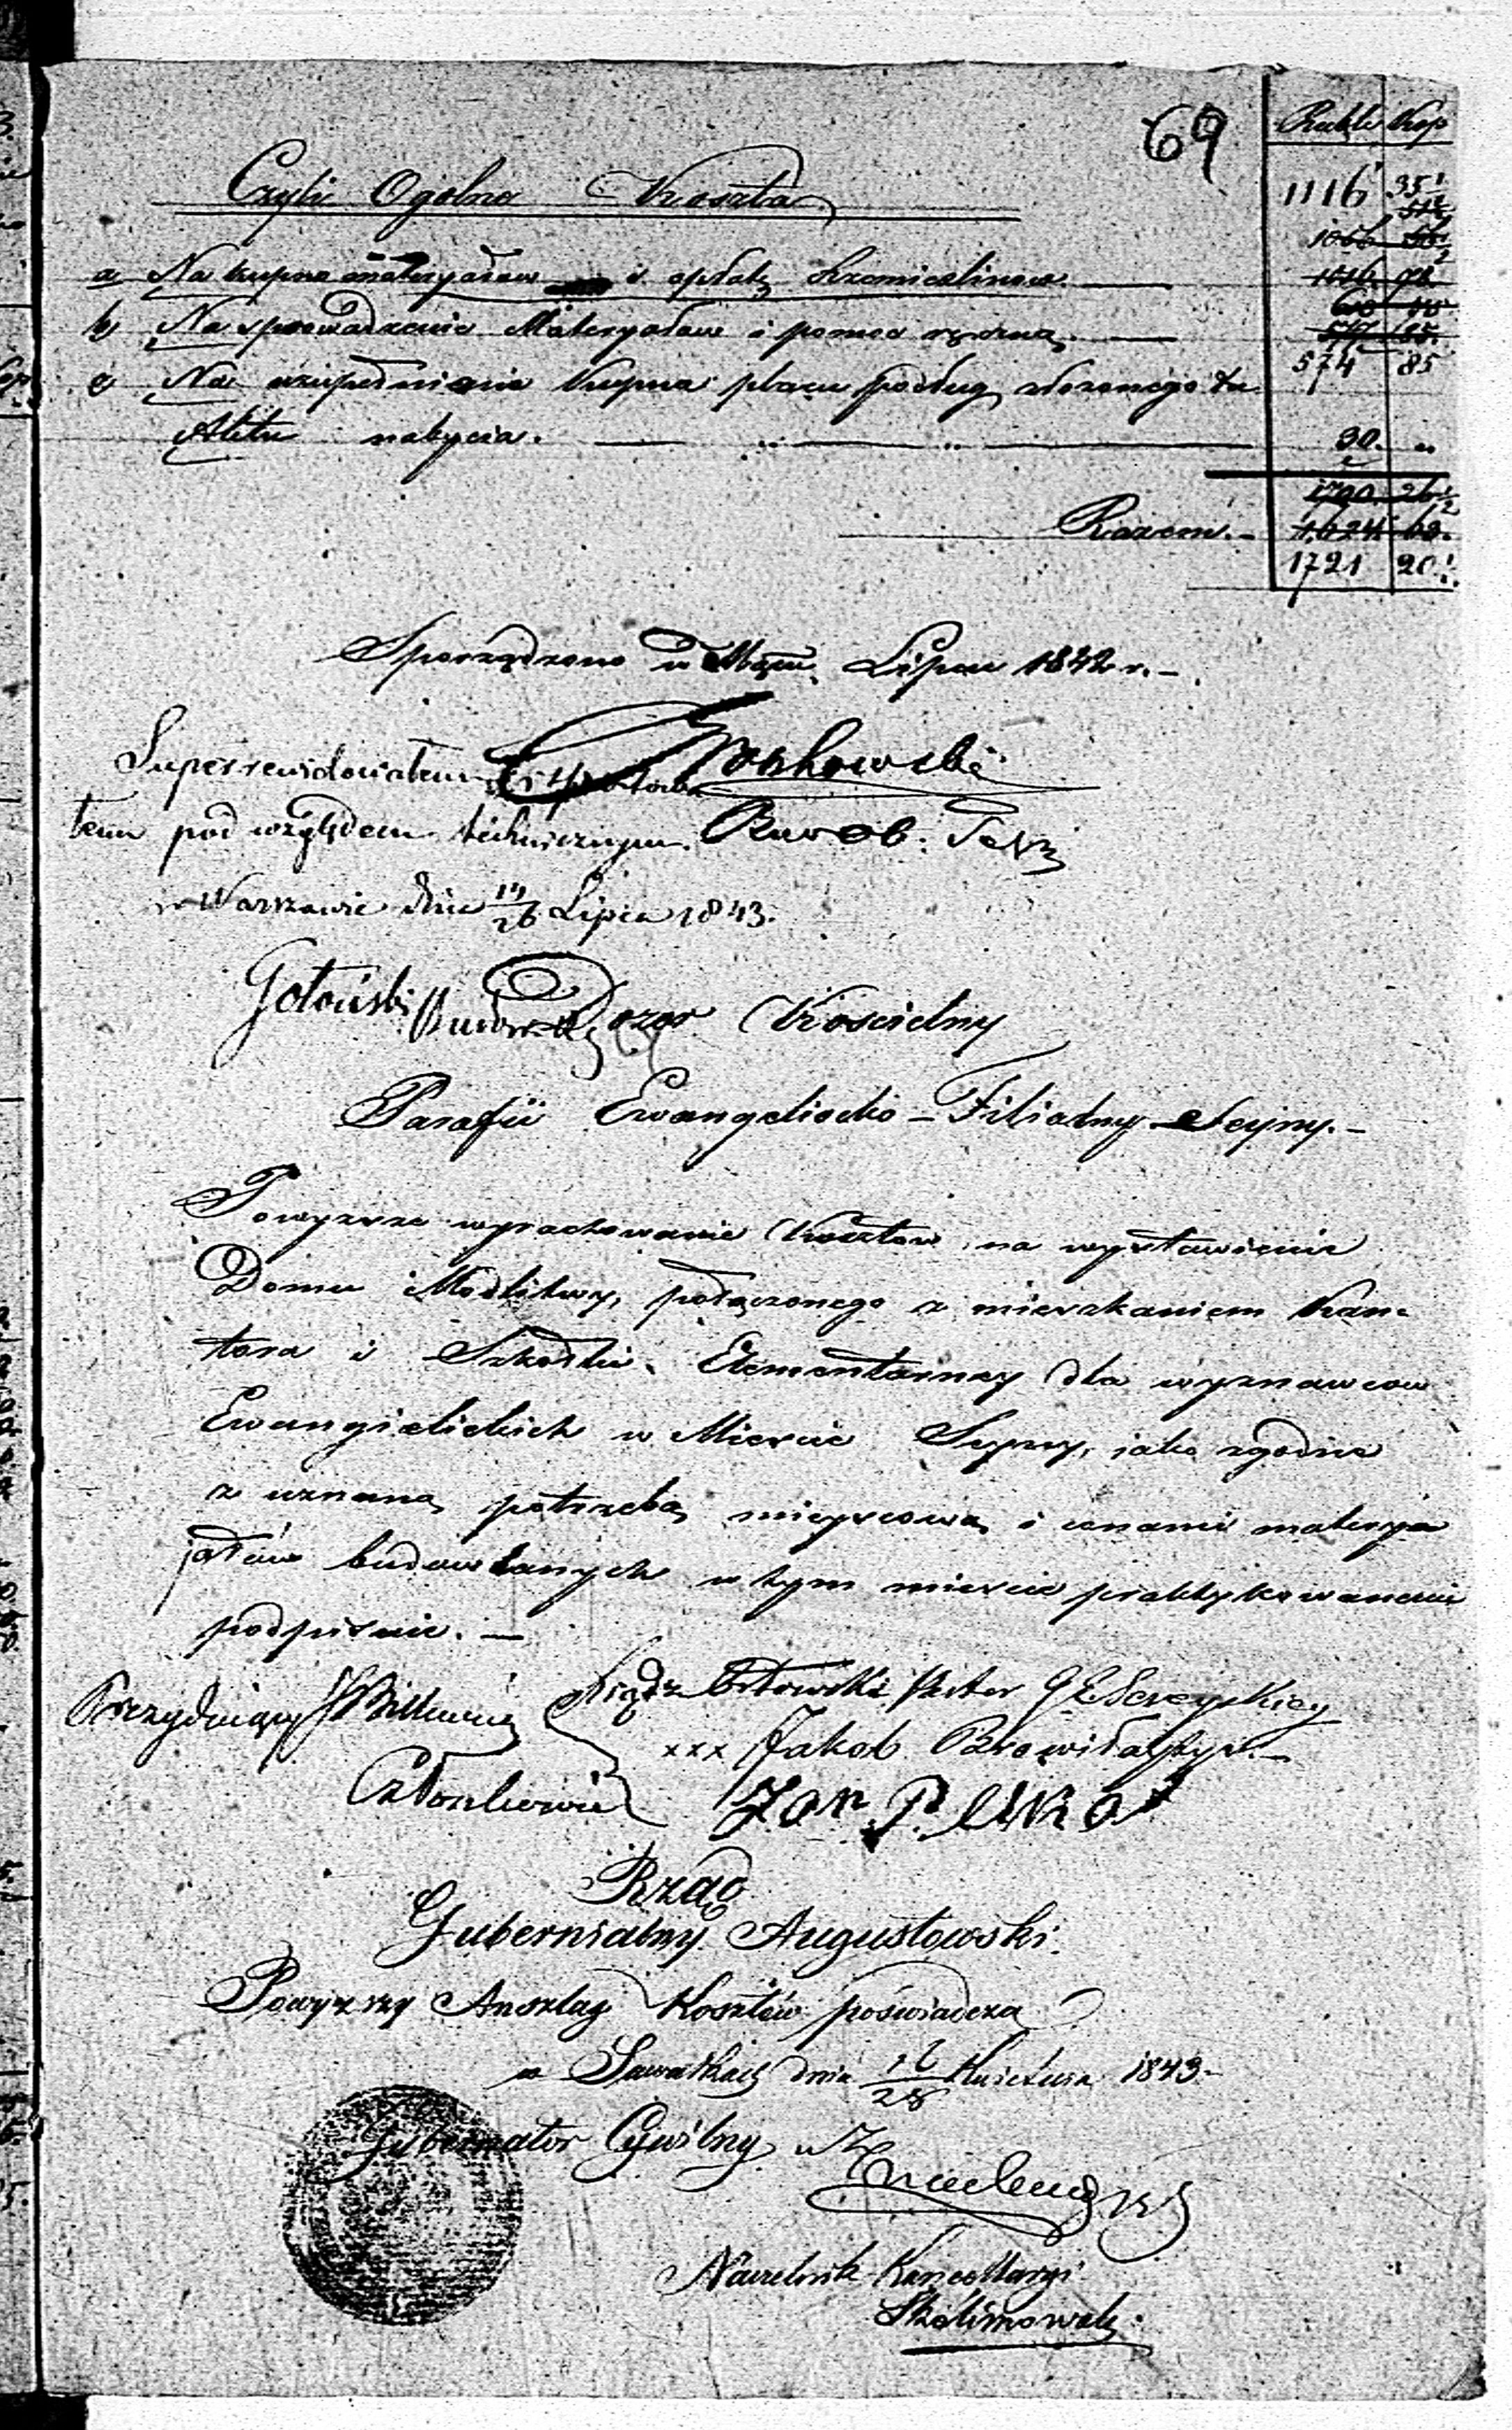 69
Ruble Kop
Czyli Ogolne Koszta
1116 35 1/2
1066 56 1/2
a Na kupno materyałow i opłatę Rzemieslników
1016 98
b) Na sprowadzenie Materyałow i pomoc ręczną
577 85
574 85
c Na uzupełnienie kupna placu podług złozonego tu
Aktu nabycia. 30. „
1700 26 1/2
Razem. 1624 68.
1721 20 1/2
Sporządzono w Lipcu 1842 r.
Superrewidowałem
tem pod względem technicznym.
w Warszawie dnia 14/26 Lipca 1843.
Gołoński Budow. Dozor Kościelny
Parafii Ewangelicko - Filialny Seyny.
Powyzsze wyrachowanie Kosztow na wystawienie
Domu Modlitwy, połączonego z mieszkaniem Kan-
tora i Szkołki Elementarney dla wyznawcow
Ewangielickich w Miescie Seyny, jako zgodne
z uznaną potrzebą mieyscową i cenami matery
jałów budowlanych w tym miescie praktykowanemi
podpisuie.
Prezydujący
Ksiądz Pastor
xxx Jakob
Członkowie Jan
Rząd
Gubernialny Augustowski.
Powyzszy Anszlag Kosztów poświadcza
w Suwałkach dnia 16/28 Kwietnia 1843.
Gubernator Cywilny
Naczelnik Kancellaryi
Skolimowski